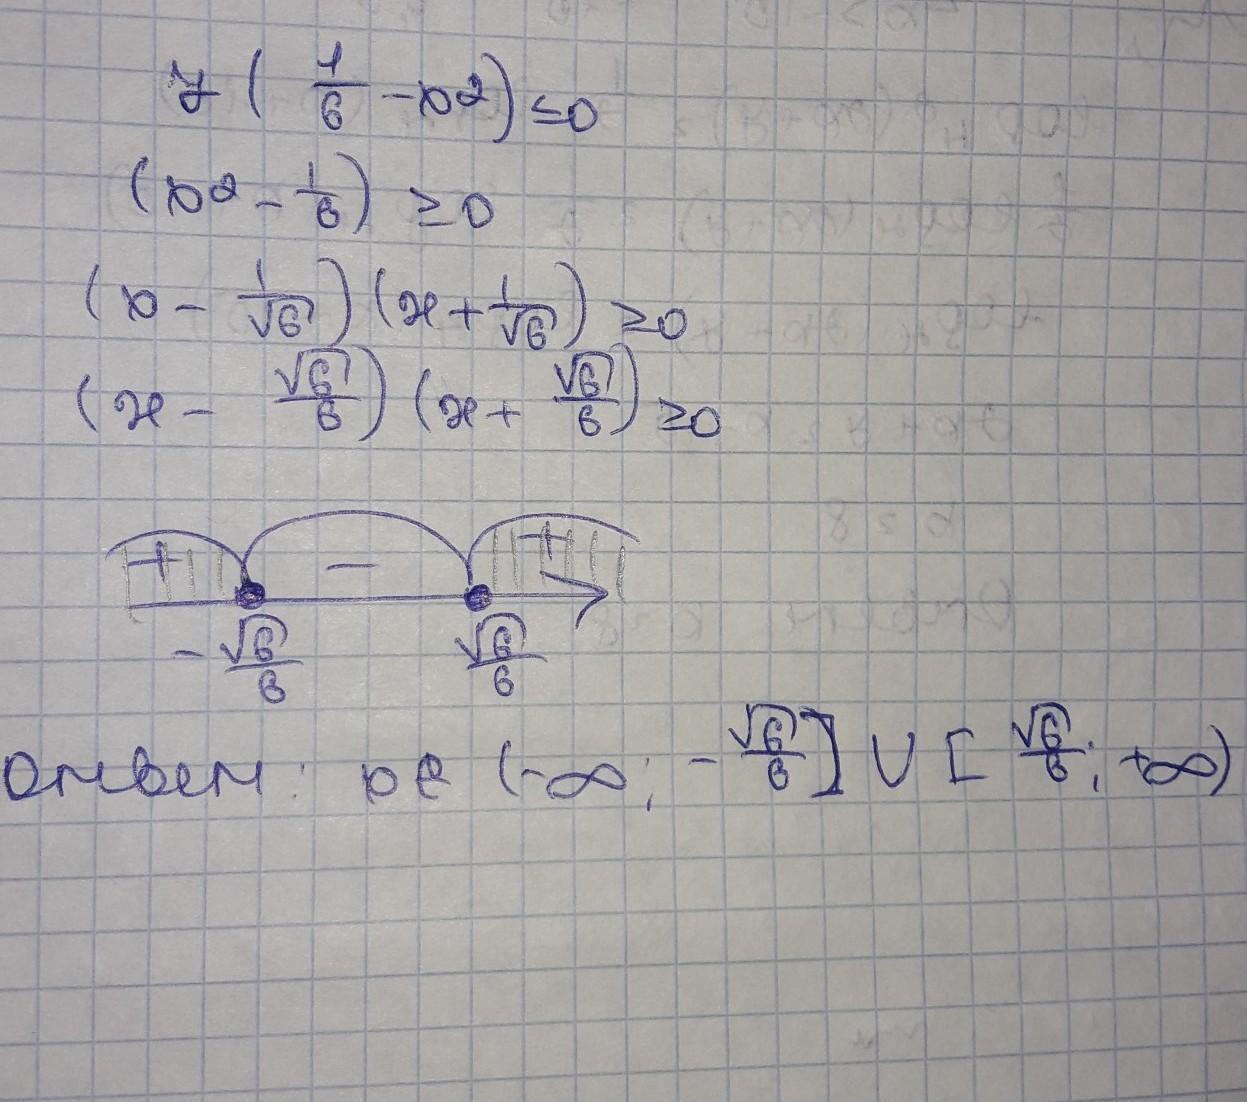 7 ( 1/6 - x² ) ≤ 0
( x² - 1/6 ) ≥ 0
( x - 1/√6 ) ( x + 1/√6 ) ≥ 0
( x - √6/6 ) ( x + √6/6 ) ≥ 0
+ - +
- √6/6 √6/6
Ответ: x ∈ (-∞; - √6/6 ] ∪ [ √6/6 ; +∞)